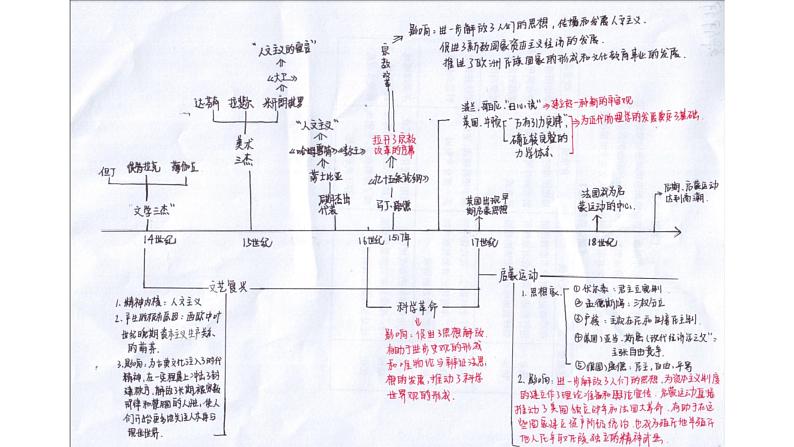 影响：进一步解放了人们的思想，传播和发展人文主义．
促进了新教国家资本主义经济的发展．
推进了欧洲民族国家的形成和文化教育事业的发展．
宗教改革
"人文主义的宣言"
《大卫》
达芬奇 拉斐尔 米开朗琪罗
美术三杰
但丁 彼特拉克 薄伽丘
"文学三杰"
"人文主义"
《哈姆雷特》
莎士比亚
后期杰出代表
拉开了宗教改革的序幕
《九十五条论纲》
马丁·路德
波兰．哥白尼"日心说"→建立起一种新的宇宙观
英国．牛顿"万有引力定律"→为近代物理学的发展奠定了基础．
确立较完整的力学体系．
英国出现早期启蒙思想
法国成为启蒙运动的中心．
后期，启蒙运动达到高潮．
14世纪 15世纪 16世纪 1517年 17世纪 18世纪
文艺复兴
科学革命
启蒙运动
1．精神内核：人文主义
2．产生的根本原因：西欧中世纪晚期资本主义生产关系的萌芽．
3．影响：为古典文化注入了时代精神，在一定程度上冲击了封建
现世世界．
影响：促进了思想解放，
有助于进步史观的形成
和唯物论与辩证法思
想的发展，推动了科学
世界观的形成．
1．思想家：
① 伏尔泰：君主立宪制
② 孟德斯鸠：三权分立
③ 卢梭：主权在民和直接民主制．
④ 英国：亚当．斯密《现代经济学之父"
主张自由竞争．
⑤ 德国：康德：民主，自由，平等
2．影响：进一步解放了人们的思想，为资本主义制度
的建立作了理论准备和舆论宣传．启蒙运动直接
推动了美国独立战争和法国大革命．有助于在这
些国家建立资产阶级统治，也成为殖民地半殖民
地人民争取民族独立的精神武器．